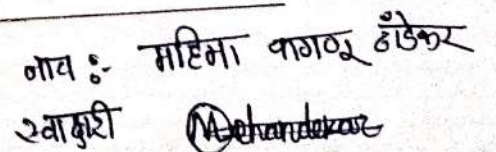 नाव :- महिमा वागणू हाँडेकर
स्वाक्षरी Mehandekar